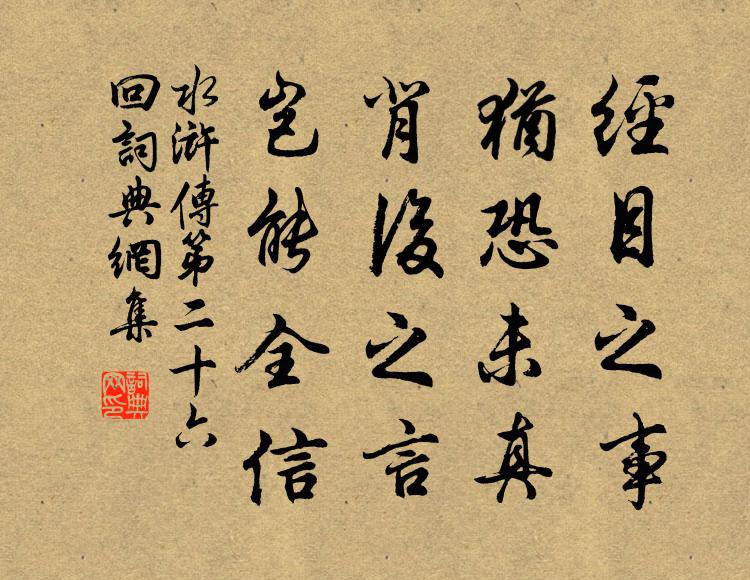 經目之事
猶恐未真
背後之言
豈能全信
水滸傳第二十六
回詞典網集
詞典
網印